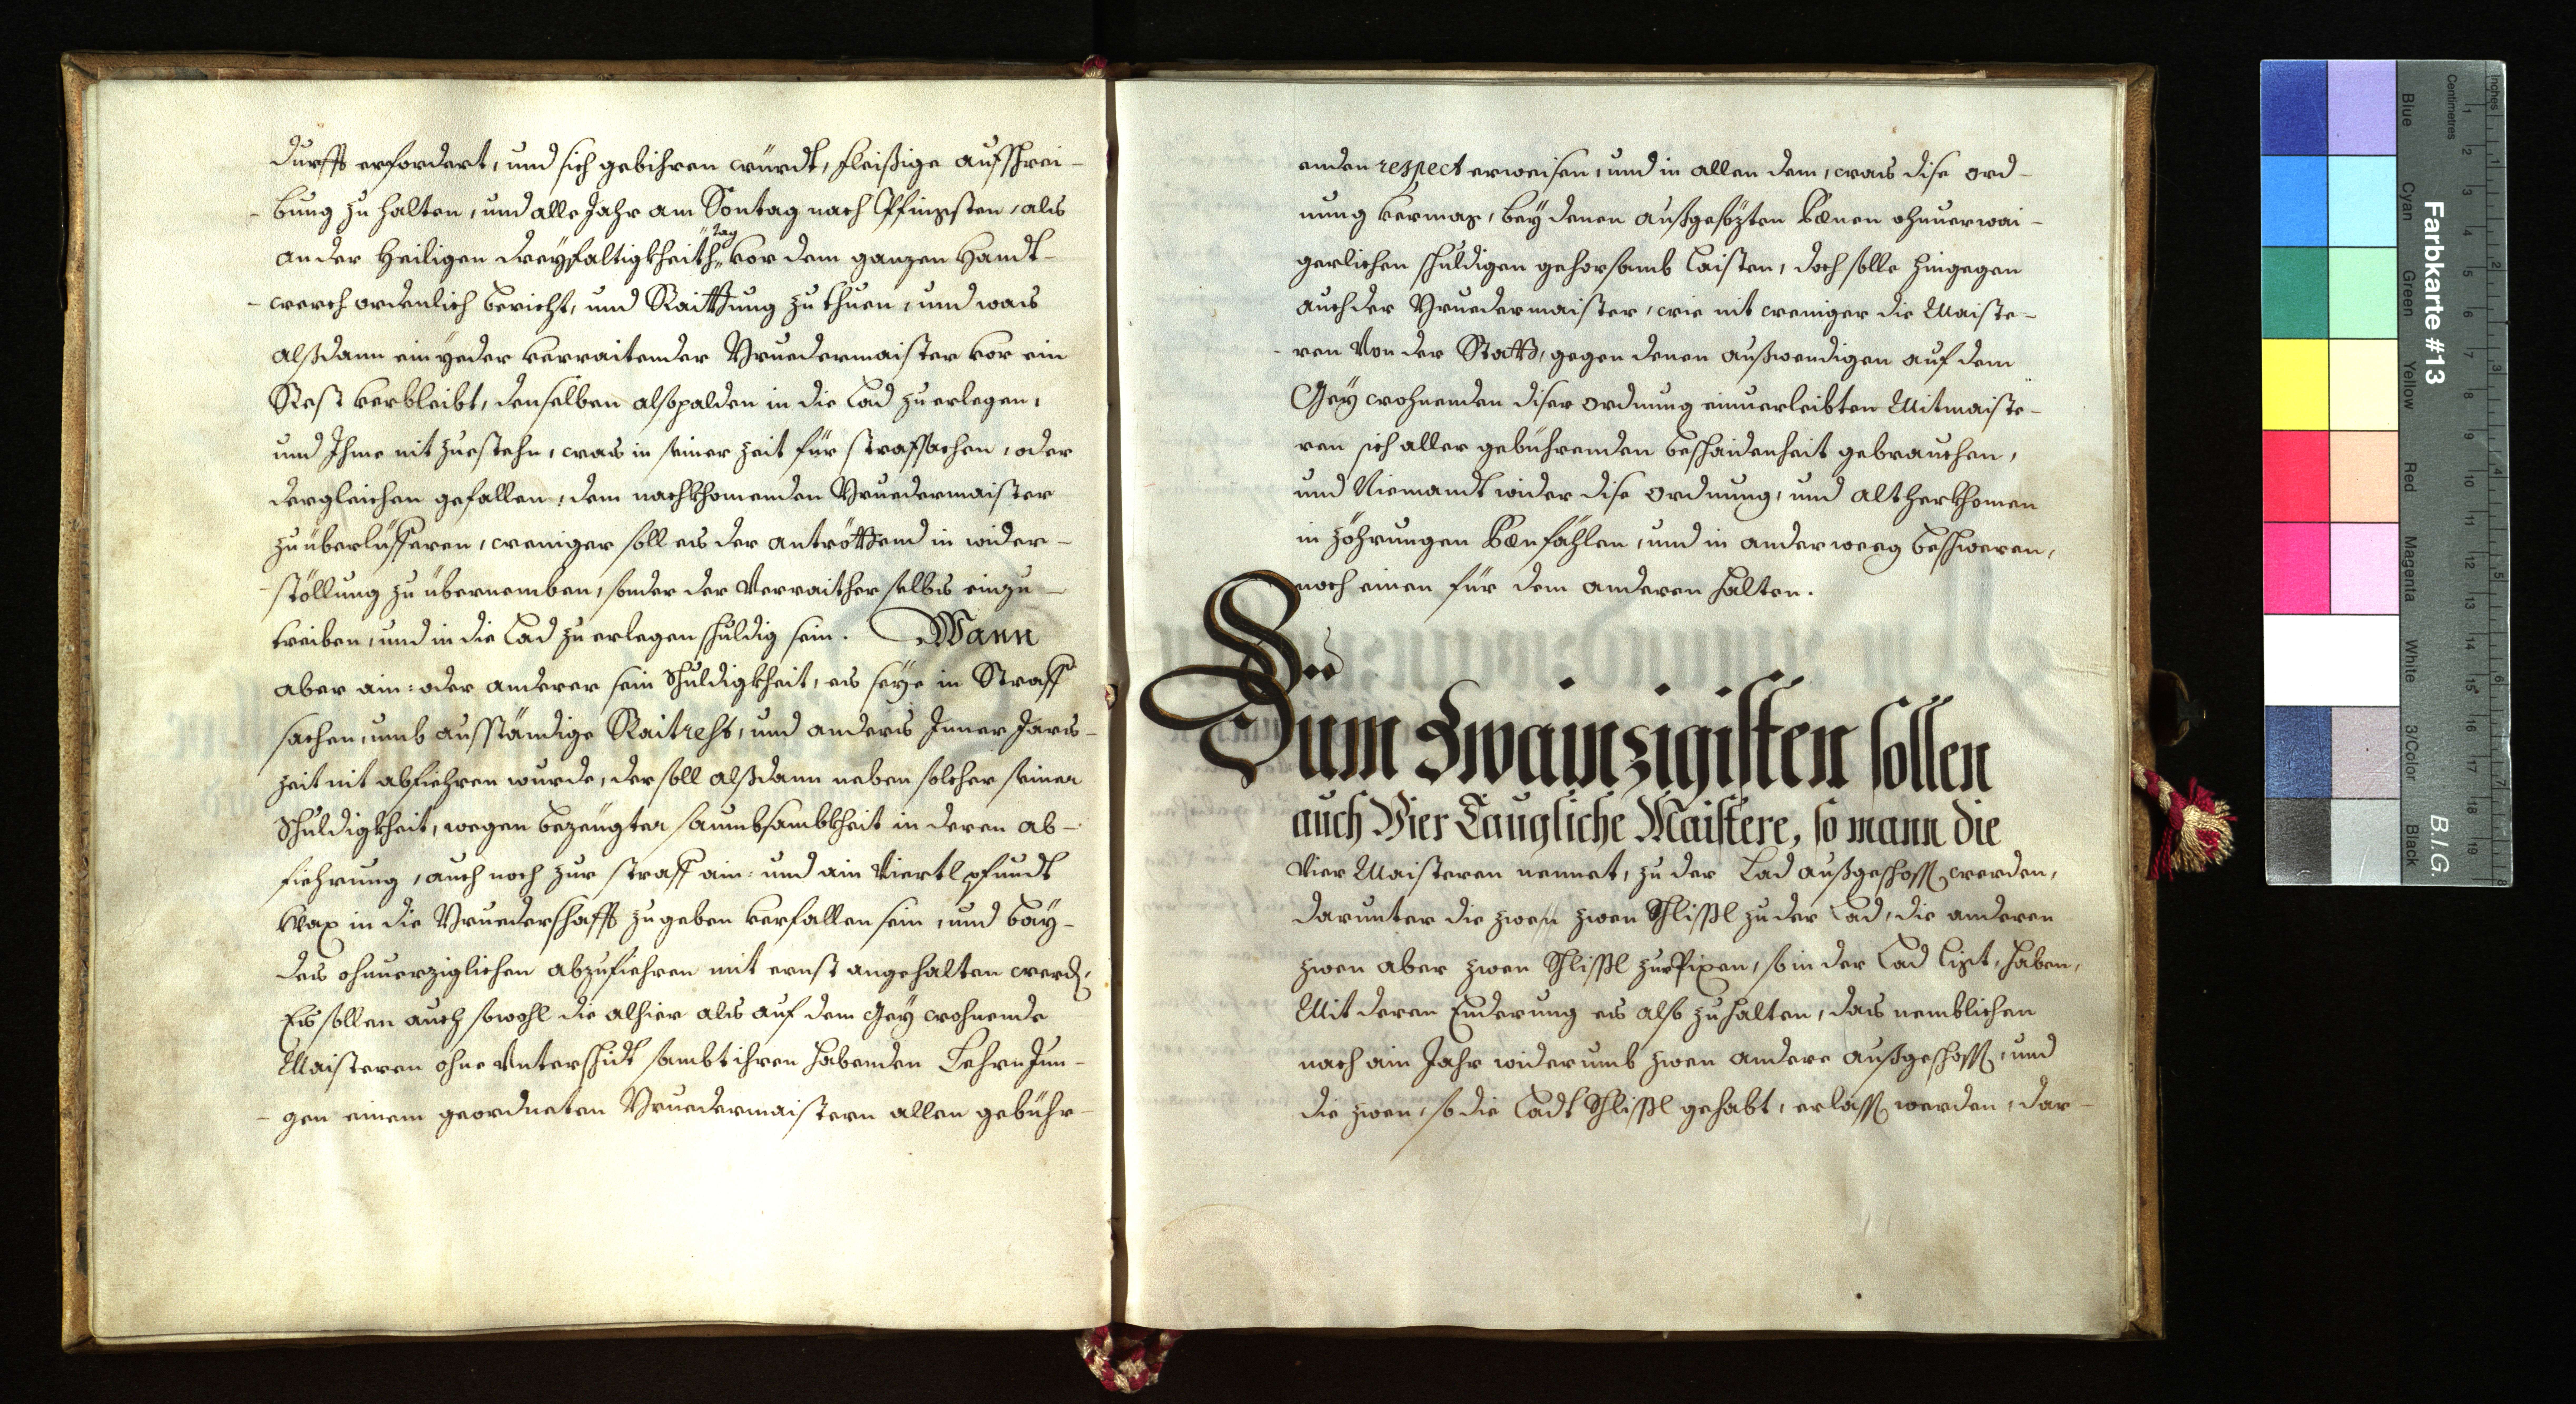 durfft erfordert, und sich gebihren würdt, fleißige aufschrei-
-bung zu halten, und alle Jahr am Sontag nach Pfingsten, als
an der Heiligen dreyfaltigkheith tag vor dem ganzen Handt-
-werch ordenlich bericht, und Raittung zu thuen, und was
alßdann ein yeder verraitender Bruedermaister vor ein
Rest verbleibt, denselben alsopalden in die Lad zu erlegen,
und Ihme nit zuestehn, was in seiner zeit für straffsachen, oder
dergleichen gefallen, dem nachkhomenden Bruedermaister
zu überlüfferen, weniger soll es der antröttend in wider-
-stöllung zu übernemben, sonder der Verraither selbs einzu-
treiben, und in die Lad zu erlegen schuldig sein. Wann
aber ain: oder anderer sein Schuldigkheit, es seye in Straff
sachen, umb ausständige Raitrest, und anders Inner Jars-
zeit nit abfiehren wurde, der soll alßdann neben solcher seiner
Schuldigkheit, wegen bezeugter saumbsambkheit in deren ab-
fiehrung, auch noch zur straff ain: und ain Viertl pfundt
Wax in die Bruederschafft zu geben verfallen sein, und bay-
des ohnuerziglichen abzufiehren mit ernst angehalten werd,
Es sollen auch sowohl die alhier als auf dem Gey wohnende
Maisteren ohne Vnterschidt sambt ihren habenden Lehrn Jun-
-gen einem geordneten Bruedermaistern allen gebühr-
enden respect erweisen, und in allen dem, was dise ord-
nung vermag, bey denen außgesözten Pœnen ohnuerwai-
gerlichen schuldigen gehorsamb laisten, doch solle hingegen
auch der Bruedermaister, wie nit weniger die Maiste-
-ren Von der Statt, gegen denen außwendigen auf dem
Gey wohnenden diser ordnung einuerleibten Mitmaiste-
ren sich aller gebührenden beschaidenheit gebrauchen,
und Niemandt wider dise ordnung, und altherkhomen
in zöhrungen Pœnfählen, und in anderweeg beschweren,
noch einen für dem anderen halten.
Zum Zwainzigisten sollen
auch Vier Taugliche Maistere, so mann die
Vier Maisteren nennet, zu der Lad außgeschoss werden,
darunter die zwen zwen Schlissl zu der Lad, die anderen
zwen aber zwen Schlissl zur Pixen, so in der Lad ligt, haben,
Mit deren Enderung es also zu halten, das nemblichen
nach ain Jahr widerumb zwen andere außgeschoss, und
die zwen, so die Ladt Schlissl gehabt, erlass werden, dar-
Farbkarte #13
B.I.G.
Blue
Cyan
Green
Yellow
Red
Magenta
White
3/Color
Black
Centimetres
Inches